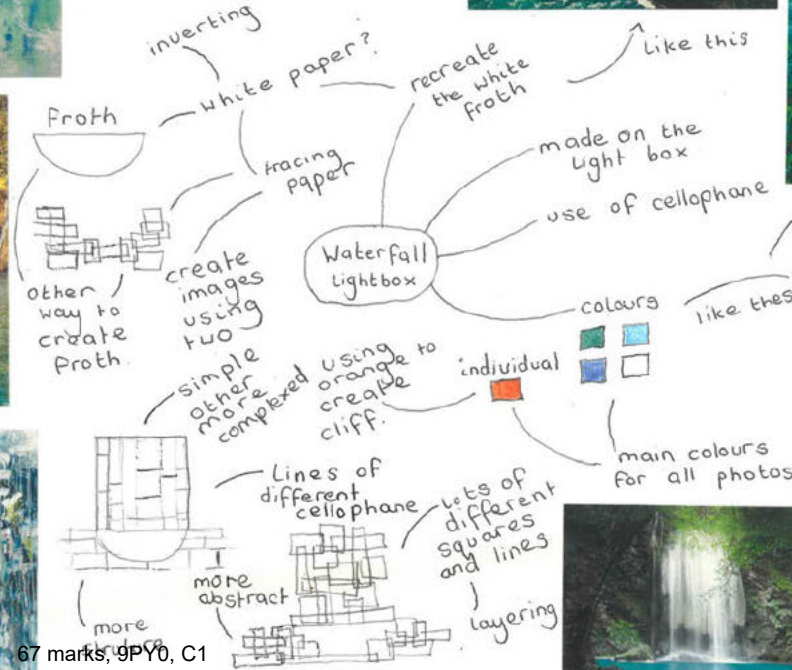 inverting
white paper?
Froth
recreate
the white
froth
Like this
tracing
paper
made on the
light box
use of cellophane
Waterfall
Lightbox
create
images
using
two
other
way to
create
froth.
colours
like thes
individual
using
orange to
create
cliff.
simple
other
more
complexed
main colours
for all photos
Lines of
different
cellophane
Lots of
different
squares
and lines
layering
more
abstract
more
67 marks, 9PY0, C1